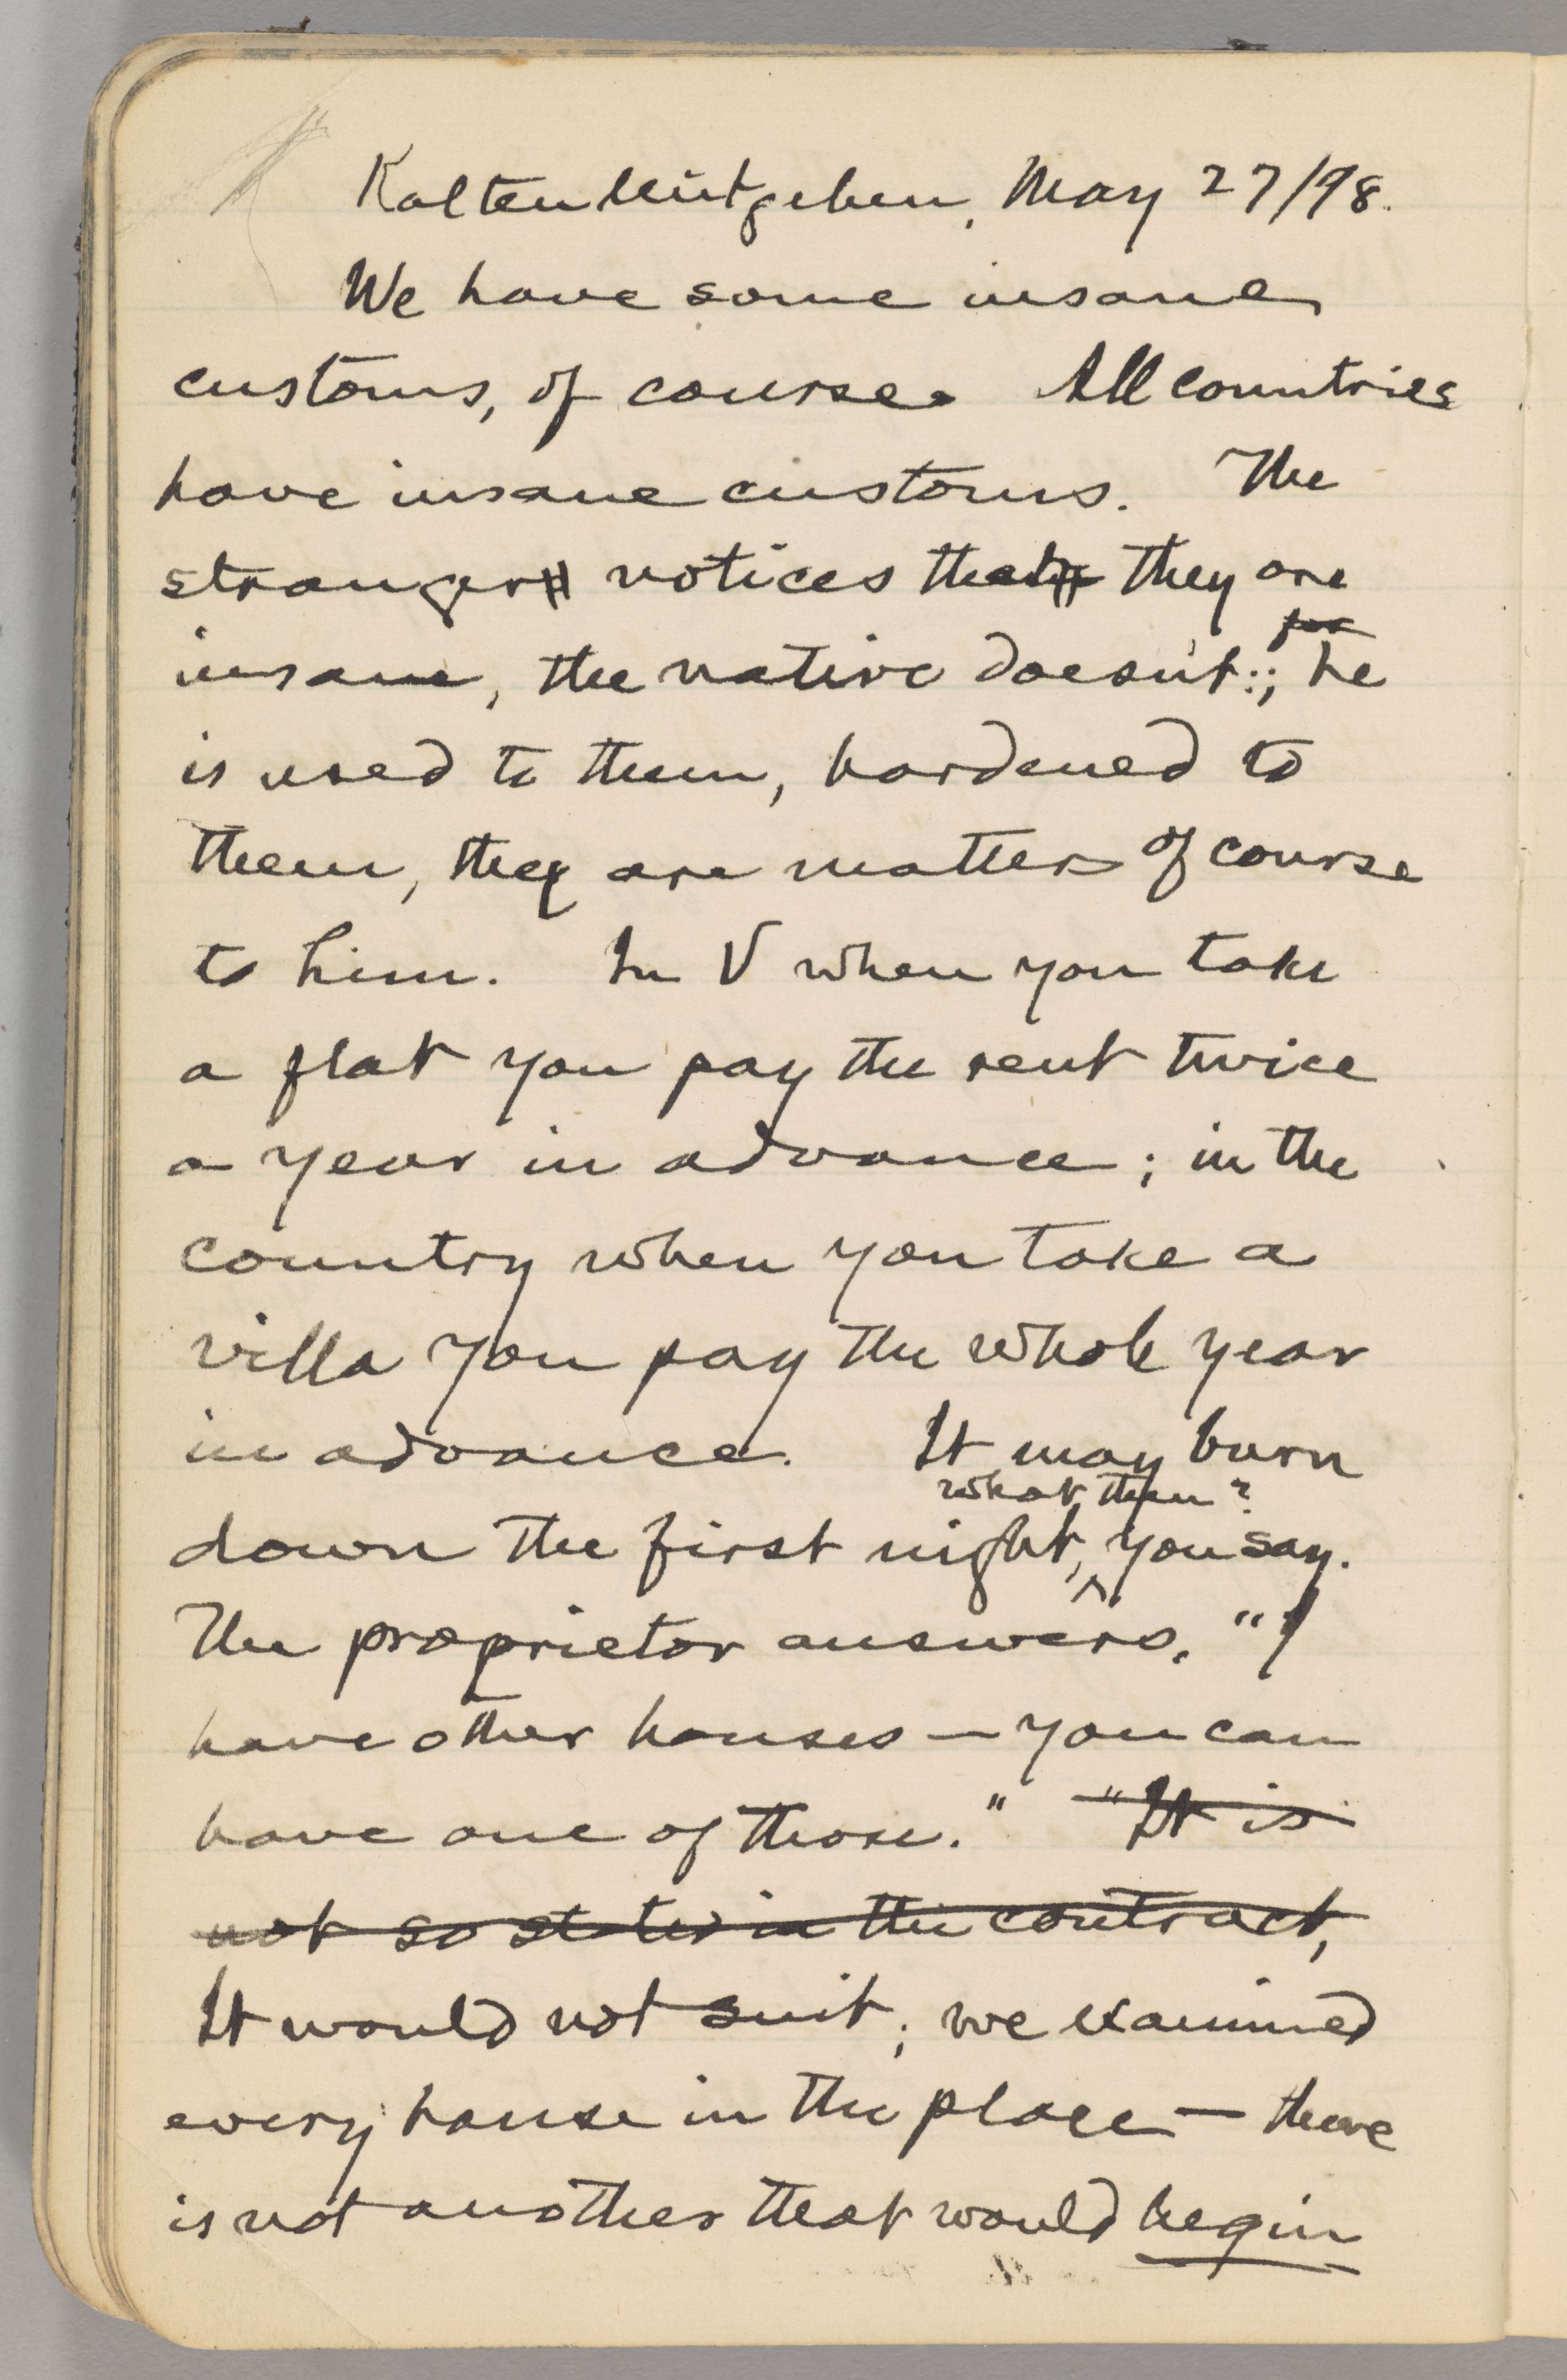 Kaltenleutgeben, May 27/98.
We have some insane
customs, of course. All countries
have insane customs. The
stranger notices that they are
insane, the native doesn't; he
is used to them, hardened to
them, they are matters of course
to him. In V when you take
a flat you pay the rent twice
a year in advance; in the
country when you take a
villa you pay the whole year
in advance. It may burn
what then?
down the first night, you say.
The proprietor answers, "I
have other houses — you can
have one of those." "It is
not so stated in the contract,
It would not suit; we examined
every house in the place — there
is not another that would begin